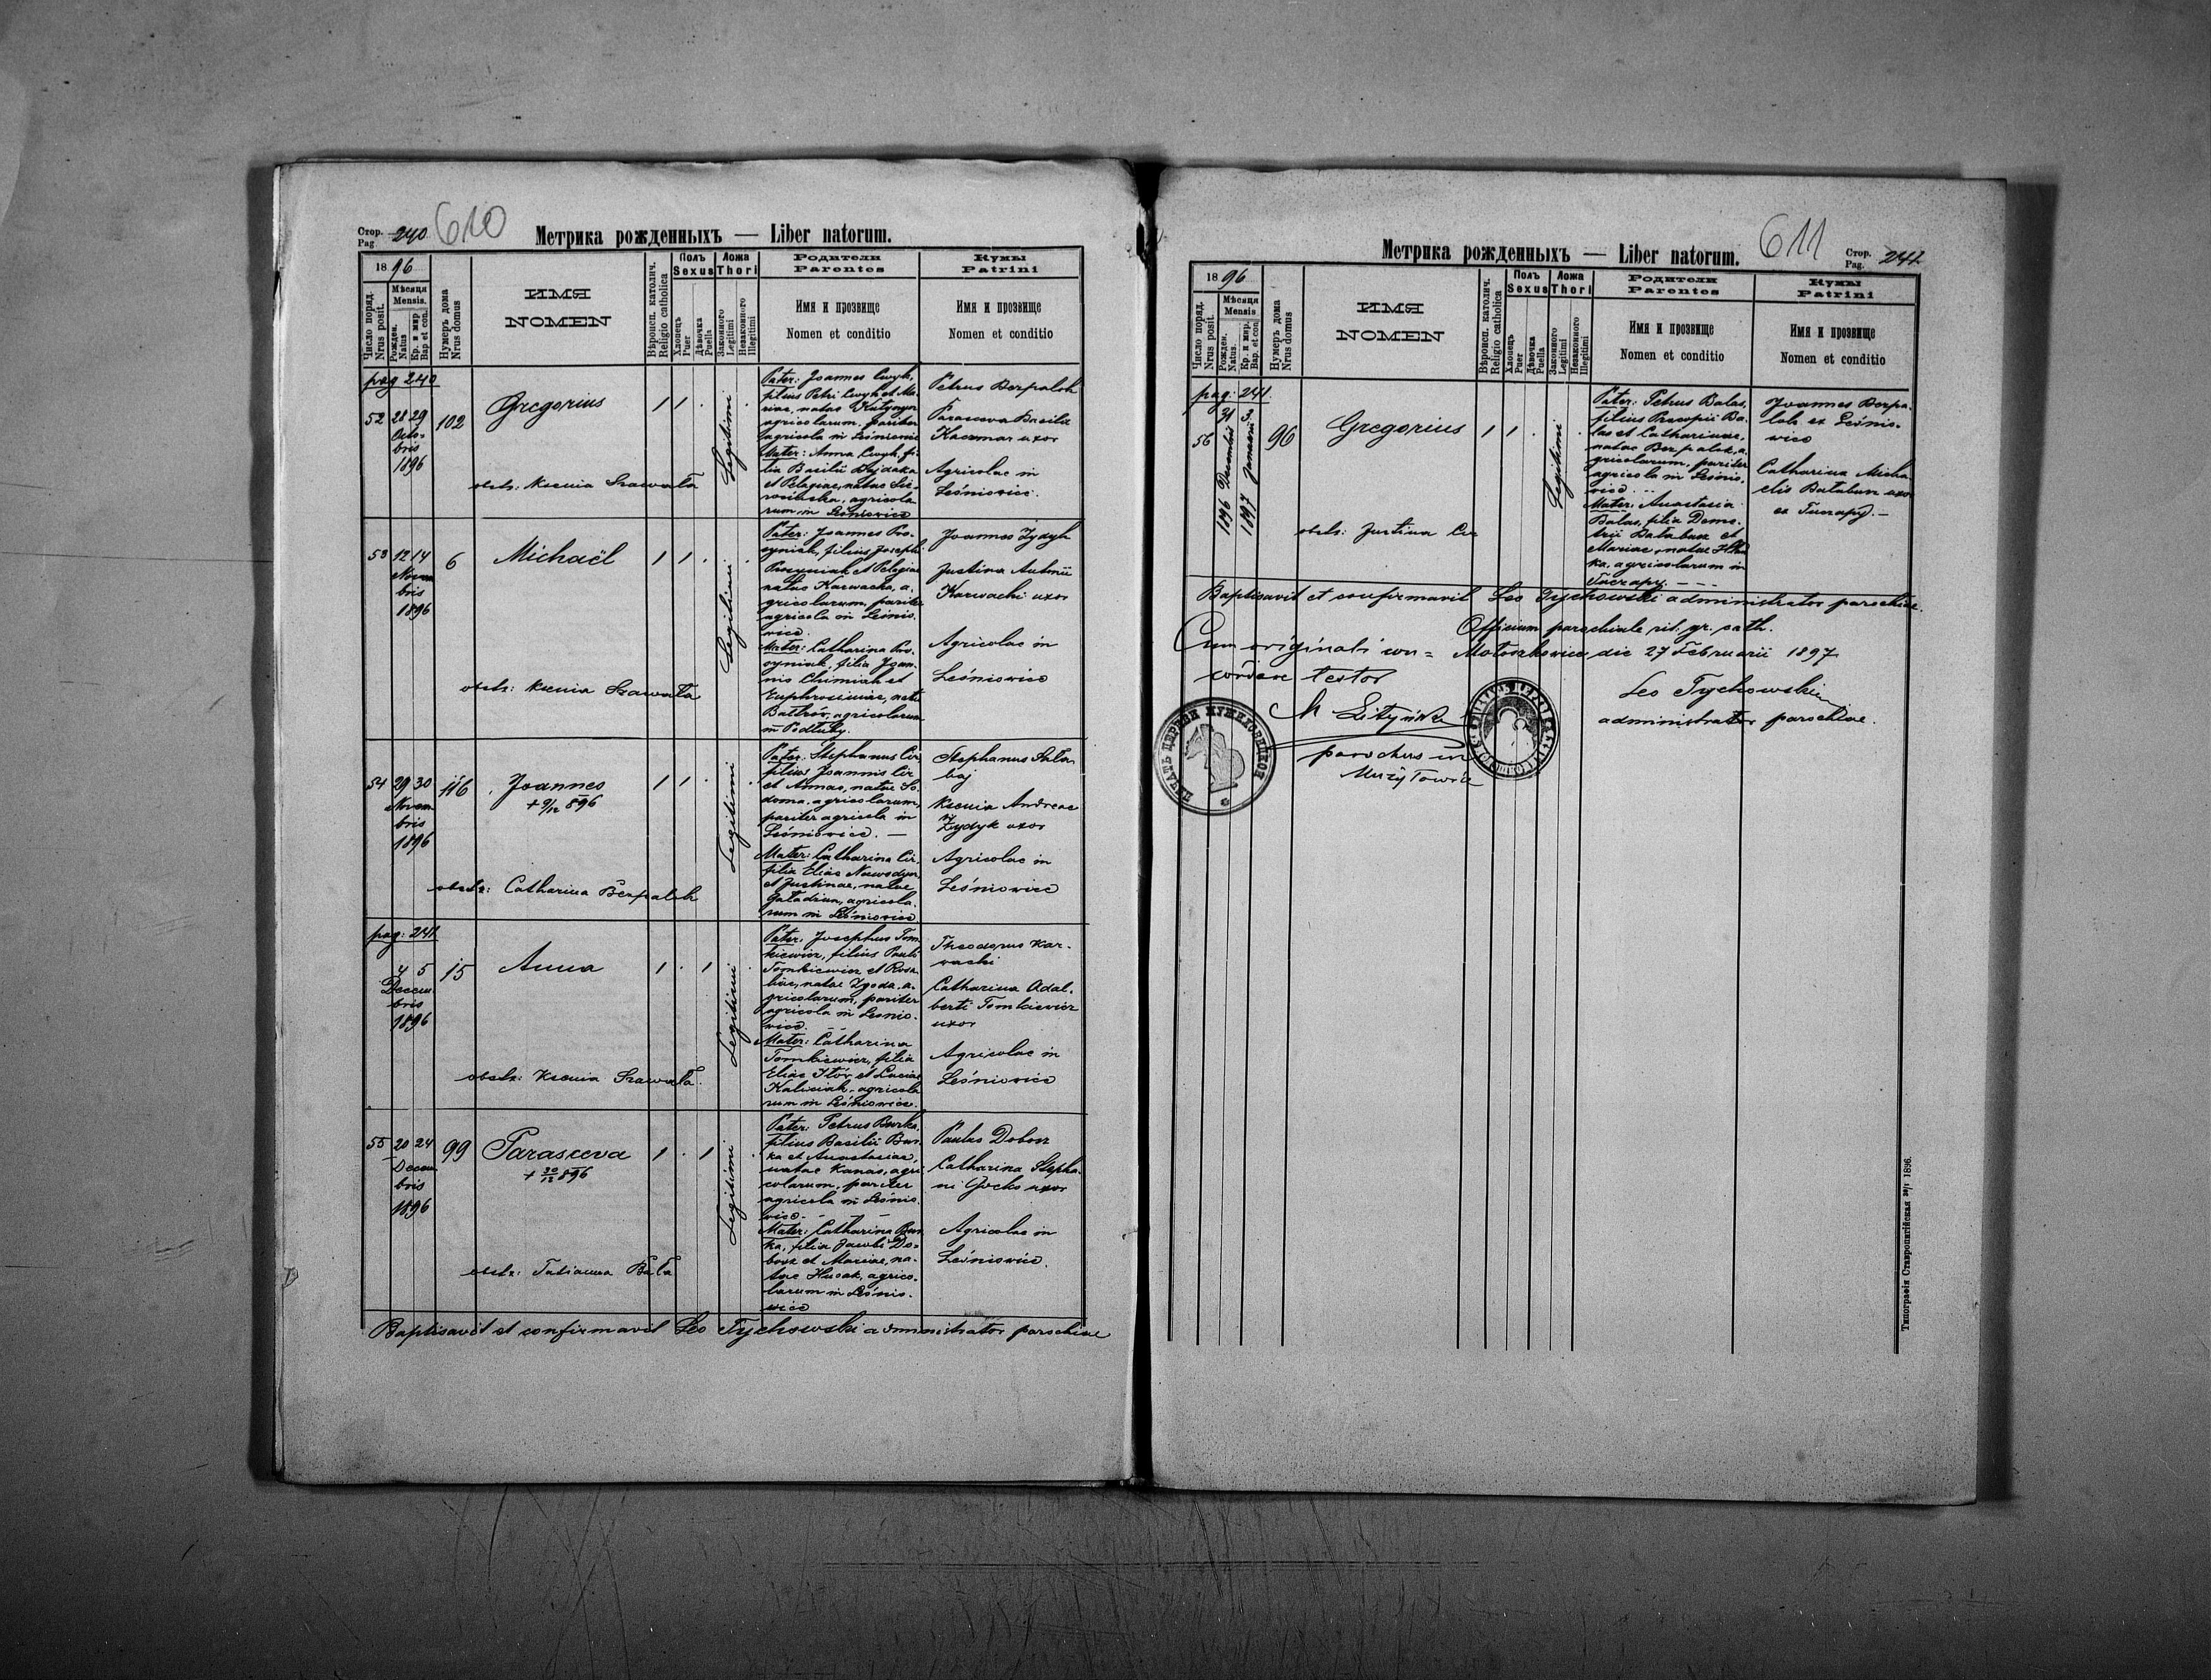 Стор. Pag. 240 610
Метрика рожденныхъ — Liber natorum.
1896
Число поряд. Nrus posit.
Мѣсяця Mensis.
Рожден. Natus
Кр. и мир. Bap et con.
Нумеръ дома Nrus domus
ИМЯ
NOMEN
Вѣроисп. католич. Religio catholica
Полъ Sexus
Хлопець Puer
Дѣвочка Puella
Ложа Thori
Законного Legitimi
Незаконного Illegitimi
Родители
Parentes
Имя и прозвище
Nomen et conditio
Кумы
Patrini
Имя и прозвище
Nomen et conditio
pag 240
52 28 29 102 Gregorius 1 1 .
Octo-
bris
1896
obstr: Ksenia Szawała
Legitimi
Pater: Joannes Cwyk,
filius Petri Cwyk et Ma-
riae, natae
agricolarum, pariter
agricola in Leśniowice
Mater: Anna Cwyk, fi-
lia Basilii Hajdaka
et Pelagiae, natae
agricola-
rum in Leśniowice
Petrus Berpalok
Parasceva Basilii
Kaczmar uxor
Agricolae in
Leśniowice.
53 12 14 6 Michaël 1 1 .
Novem
bris
1896
obstr: Ksenia Szawała
Legitimi
Pater: Joannes Pro-
cyniak, filius Josephi
Procyniak et Pelagiae
natae Karwacka, a-
gricolarum, pariter
agricola in Leśnio-
wice.
Mater: Catharina Pro-
cyniak, filia Joan-
nis Chimiak et
Euphrosiniae, natae
agricolarum
in Podłuby.
Joannes Zydyk
Justina Antonii
Karwacki uxor
Agricolae in
Leśniowice
54 29 30 116 Joannes 1 1 .
+ 9/12 896
Novem
bris
1896
obstr: Catharina Berpalok
Legitimi
Pater: Stephanus Cir
filius Joannis Cir
et Annae, natae So-
doma, agricolarum,
pariter agricola in
Leśniowice. —
Mater: Catharina Cir,
filia Eliae
et Justinae, natae
agricola-
rum in Leśniowice
Stephanus Szla-
baj
Ksenia Andreae
Zydyk uxor
Agricolae in
Leśniowice
pag: 241
4 5 15 Anna 1 . 1
Decem
bris
1896
obstr: Ksenia Szawała.
Legitimi
Pater: Josephus Tom-
kiewicz, filius Pauli
Tomkiewicz et Rosa-
liae, natae Zgoda, a-
gricolarum, pariter
agricola in Leśnio-
wice.
Mater: Catharina
Tomkiewicz, filia
Eliae Któr, et Luciae
Kalwiak, agricola
rum in Leśniowice.
Theodorus Kar-
wacki
Catharina Adal-
berti Tomkiewicz
uxor
Agricolae in
Leśniowice
55 20 24 99 Parasceva 1 . 1
+ 30/12 896
Decem
bris
1896
obstr: Tatianna Bała
Legitimi
Pater: Petrus Burka,
filius Basilii Bur-
ka et Anastasiae,
natae Kanas, agri
colarum, pariter
agricola in Leśnio-
wice. —
Mater: Catharina Bur-
ka, filia Jacobi Do-
bosz et Mariae, na-
tae Husak, agrico-
larum in Leśnio-
wice
Paulus Dobosz
Catharina Stepha-
ni Gocko uxor
Agricolae in
Leśniowice.
Baptisavit et confirmavit Leo Tychowski administrator parochiae
Метрика рожденныхъ — Liber natorum.
611 Стор. Pag. 241
1896
Число поряд. Nrus posit.
Мѣсяця Mensis
Рожден. Natus.
Кр. и мир. Bap. et con.
Нумеръ дома Nrus domus
ИМЯ
NOMEN
Вѣроисп. католич. Religio catholica
Полъ Sexus
Хлопець Puer
Дѣвочка Puella
Ложа Thori
Законного Legitimi
Незаконного Illegitimi
Родители
Parentes
Имя и прозвище
Nomen et conditio
Кумы
Patrini
Имя и прозвище
Nomen et conditio
pag: 241
56 96 Gregorius 1 1 .
31 Decembris 1896
3 Januarii 1897
obstr: Justina Cir
Legitimi
Pater: Petrus Balas,
filius Procopii Ba-
las et Catharinae,
natae Berpalok, a-
gricolarum, pariter
agricola in Leśnio-
wice. ..
Mater: Anastasia
Balas, filia Deme-
trii Batabun et
Mariae, natae
ka, agricolarum in
Tuczapy. — — —
Joannes Berpa-
lok ex Leśnio-
wice
Catharina Micha
elis Batabun uxor
ex Tuczapy. —
Baptisavit et confirmavit Leo Tychowski administrator parochiae.
Officium parochiale rit. gr. cath.
Cum originali con=
cordare testor
Mołoszkowice die 27 Februarii 1897
M Lityński
parochus in
Mużyłowice
Leo Tychowski
administrator parochiae.
ПЕЧАТЬ ЦЕРКВИ МУЖИЛОВЕЦКОЙ
Типографія Ставропигійская 1896.